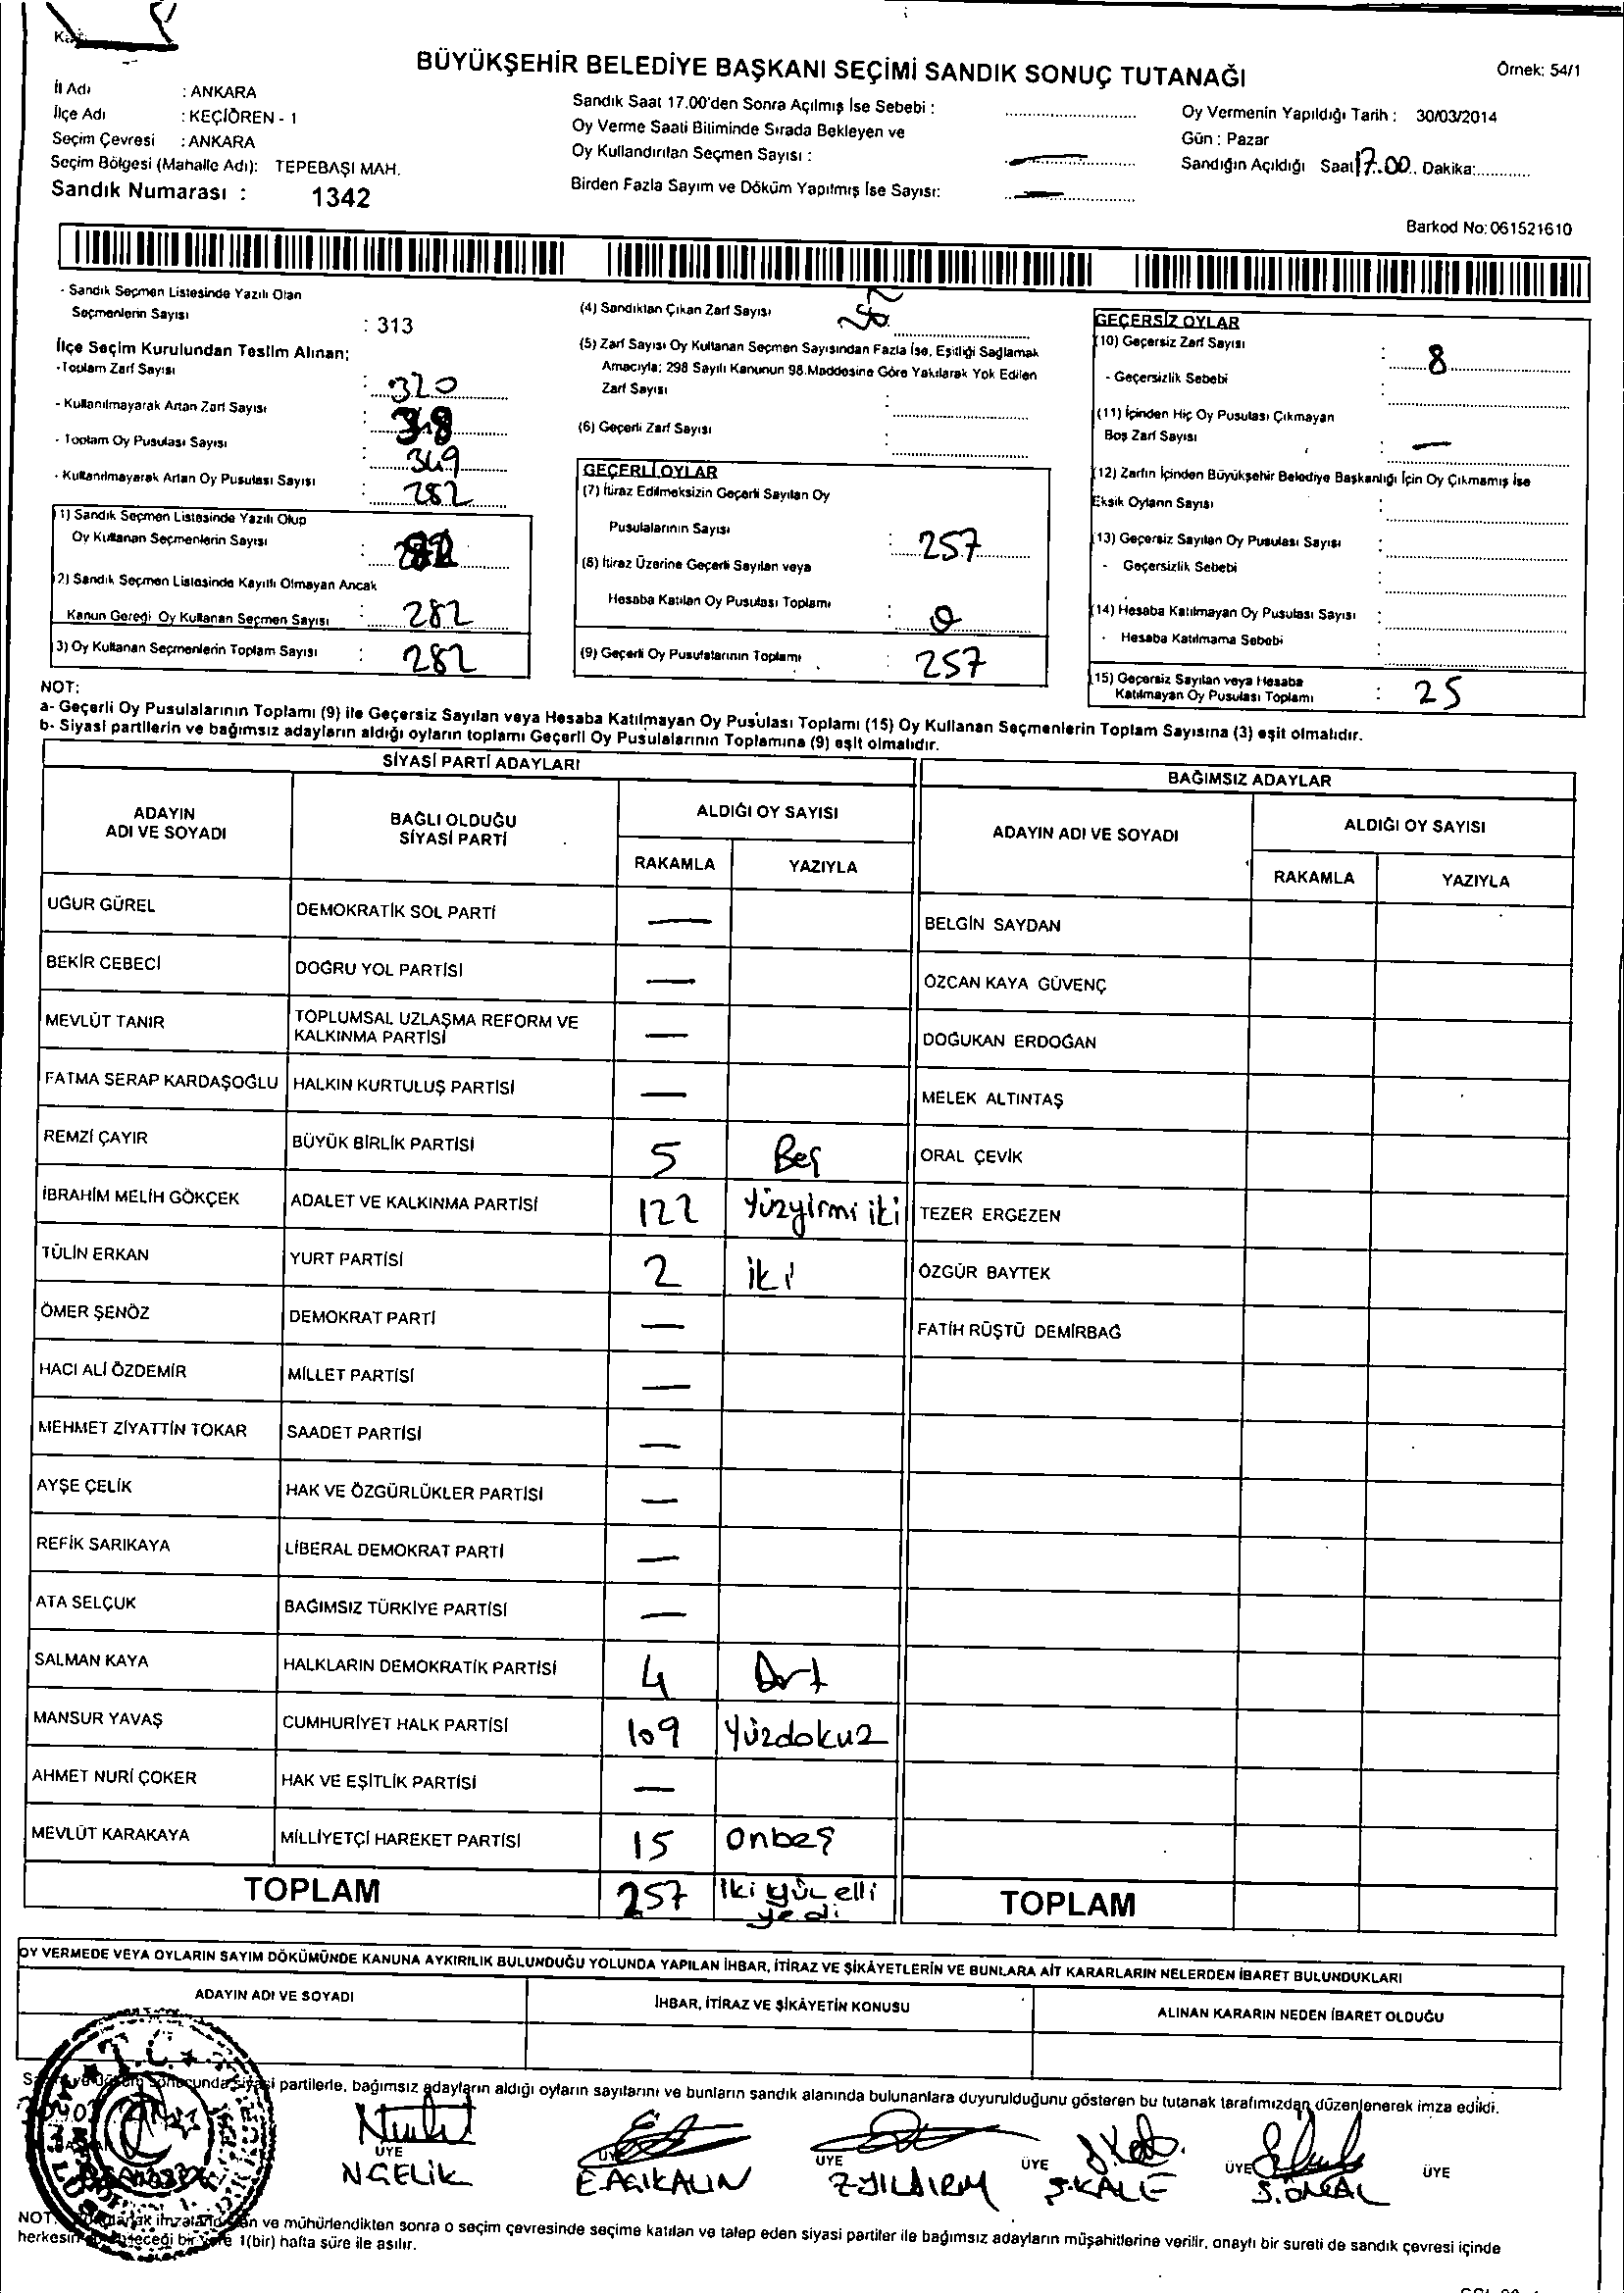 BÜYÜKŞEHİR BELEDİYE BAŞKANI SEÇİMİ SANDIK SONUÇ TUTANAĞI
Örnek: 54/1
İl Adı : ANKARA
İlçe Adı : KEÇİÖREN - 1
Seçim Çevresi : ANKARA
Seçim Bölgesi (Mahalle Adı): TEPEBAŞI MAH.
Sandık Numarası : 1342
Sandık Saat 17.00'den Sonra Açılmış İse Sebebi :
Oy Verme Saati Bitiminde Sırada Bekleyen ve
Oy Kullandırılan Seçmen Sayısı : —
Birden Fazla Sayım ve Döküm Yapılmış İse Sayısı: —
Oy Vermenin Yapıldığı Tarih : 30/03/2014
Gün : Pazar
Sandığın Açıldığı Saat 17.00 Dakika:
Barkod No: 061521610
- Sandık Seçmen Listesinde Yazılı Olan
Seçmenlerin Sayısı : 313
İlçe Seçim Kurulundan Teslim Alınan;
- Toplam Zarf Sayısı : 320
- Kullanılmayarak Artan Zarf Sayısı :
- Toplam Oy Pusulası Sayısı : 349
- Kullanılmayarak Artan Oy Pusulası Sayısı : 282
1) Sandık Seçmen Listesinde Yazılı Olup
Oy Kullanan Seçmenlerin Sayısı :
2) Sandık Seçmen Listesinde Kayıtlı Olmayan Ancak
Kanun Gereği Oy Kullanan Seçmen Sayısı : 282
3) Oy Kullanan Seçmenlerin Toplam Sayısı : 282
(4) Sandıktan Çıkan Zarf Sayısı
(5) Zarf Sayısı Oy Kullanan Seçmen Sayısından Fazla İse, Eşitliği Sağlamak
Amacıyla; 298 Sayılı Kanunun 98.Maddesine Göre Yakılarak Yok Edilen
Zarf Sayısı :
(6) Geçerli Zarf Sayısı :
GEÇERLİ OYLAR
(7) İtiraz Edilmeksizin Geçerli Sayılan Oy
Pusulalarının Sayısı : 257
(8) İtiraz Üzerine Geçerli Sayılan veya
Hesaba Katılan Oy Pusulası Toplamı : 0
(9) Geçerli Oy Pusulalarının Toplamı : 257
GEÇERSİZ OYLAR
(10) Geçersiz Zarf Sayısı : 8
- Geçersizlik Sebebi :
(11) İçinden Hiç Oy Pusulası Çıkmayan
Boş Zarf Sayısı : —
(12) Zarfın İçinden Büyükşehir Belediye Başkanlığı İçin Oy Çıkmamış İse
Eksik Oyların Sayısı :
(13) Geçersiz Sayılan Oy Pusulası Sayısı :
- Geçersizlik Sebebi :
(14) Hesaba Katılmayan Oy Pusulası Sayısı :
- Hesaba Katılmama Sebebi :
(15) Geçersiz Sayılan veya Hesaba
Katılmayan Oy Pusulası Toplamı : 25
NOT:
a- Geçerli Oy Pusulalarının Toplamı (9) ile Geçersiz Sayılan veya Hesaba Katılmayan Oy Pusulası Toplamı (15) Oy Kullanan Seçmenlerin Toplam Sayısına (3) eşit olmalıdır.
b- Siyasi partilerin ve bağımsız adayların aldığı oyların toplamı Geçerli Oy Pusulalarının Toplamına (9) eşit olmalıdır.
SİYASİ PARTİ ADAYLARI
ADAYIN ADI VE SOYADI BAĞLI OLDUĞU SİYASİ PARTİ ALDIĞI OY SAYISI
RAKAMLA YAZIYLA
UĞUR GÜREL DEMOKRATİK SOL PARTİ —
BEKİR CEBECİ DOĞRU YOL PARTİSİ —
MEVLÜT TANIR TOPLUMSAL UZLAŞMA REFORM VE KALKINMA PARTİSİ —
FATMA SERAP KARDAŞOĞLU HALKIN KURTULUŞ PARTİSİ —
REMZİ ÇAYIR BÜYÜK BİRLİK PARTİSİ 5 Beş
İBRAHİM MELİH GÖKÇEK ADALET VE KALKINMA PARTİSİ 122 Yüzyirmi iki
TÜLİN ERKAN YURT PARTİSİ 2 iki
ÖMER ŞENÖZ DEMOKRAT PARTİ —
HACI ALİ ÖZDEMİR MİLLET PARTİSİ —
MEHMET ZİYATTİN TOKAR SAADET PARTİSİ —
AYŞE ÇELİK HAK VE ÖZGÜRLÜKLER PARTİSİ —
REFİK SARIKAYA LİBERAL DEMOKRAT PARTİ —
ATA SELÇUK BAĞIMSIZ TÜRKİYE PARTİSİ —
SALMAN KAYA HALKLARIN DEMOKRATİK PARTİSİ 4 Dört
MANSUR YAVAŞ CUMHURİYET HALK PARTİSİ 109 Yüzdokuz
AHMET NURİ ÇOKER HAK VE EŞİTLİK PARTİSİ —
MEVLÜT KARAKAYA MİLLİYETÇİ HAREKET PARTİSİ 15 onbeş
TOPLAM 257 iki yüz elli yedi
BAĞIMSIZ ADAYLAR
ADAYIN ADI VE SOYADI ALDIĞI OY SAYISI
RAKAMLA YAZIYLA
BELGİN SAYDAN
ÖZCAN KAYA GÜVENÇ
DOĞUKAN ERDOĞAN
MELEK ALTINTAŞ
ORAL ÇEVİK
TEZER ERGEZEN
ÖZGÜR BAYTEK
FATİH RÜŞTÜ DEMİRBAĞ
TOPLAM
OY VERMEDE VEYA OYLARIN SAYIM DÖKÜMÜNDE KANUNA AYKIRILIK BULUNDUĞU YOLUNDA YAPILAN İHBAR, İTİRAZ VE ŞİKÂYETLERİN VE BUNLARA AİT KARARLARIN NELERDEN İBARET BULUNDUKLARI
ADAYIN ADI VE SOYADI İHBAR, İTİRAZ VE ŞİKÂYETİN KONUSU ALINAN KARARIN NEDEN İBARET OLDUĞU
T.C.
partilerle, bağımsız adayların aldığı oyların sayılarını ve bunların sandık alanında bulunanlara duyurulduğunu gösteren bu tutanak tarafımızdan düzenlenerek imza edildi.
ÜYE ÜYE ÜYE ÜYE ÜYE ÜYE
N GELİK E.AÇIKALIN Z.YILDIRIM Ş.KALE S.ÖNCAL
NOT: ve mühürlendikten sonra o seçim çevresinde seçime katılan ve talep eden siyasi partiler ile bağımsız adayların müşahitlerine verilir, onaylı bir sureti de sandık çevresi içinde
herkesin bir yere 1(bir) hafta süre ile asılır.